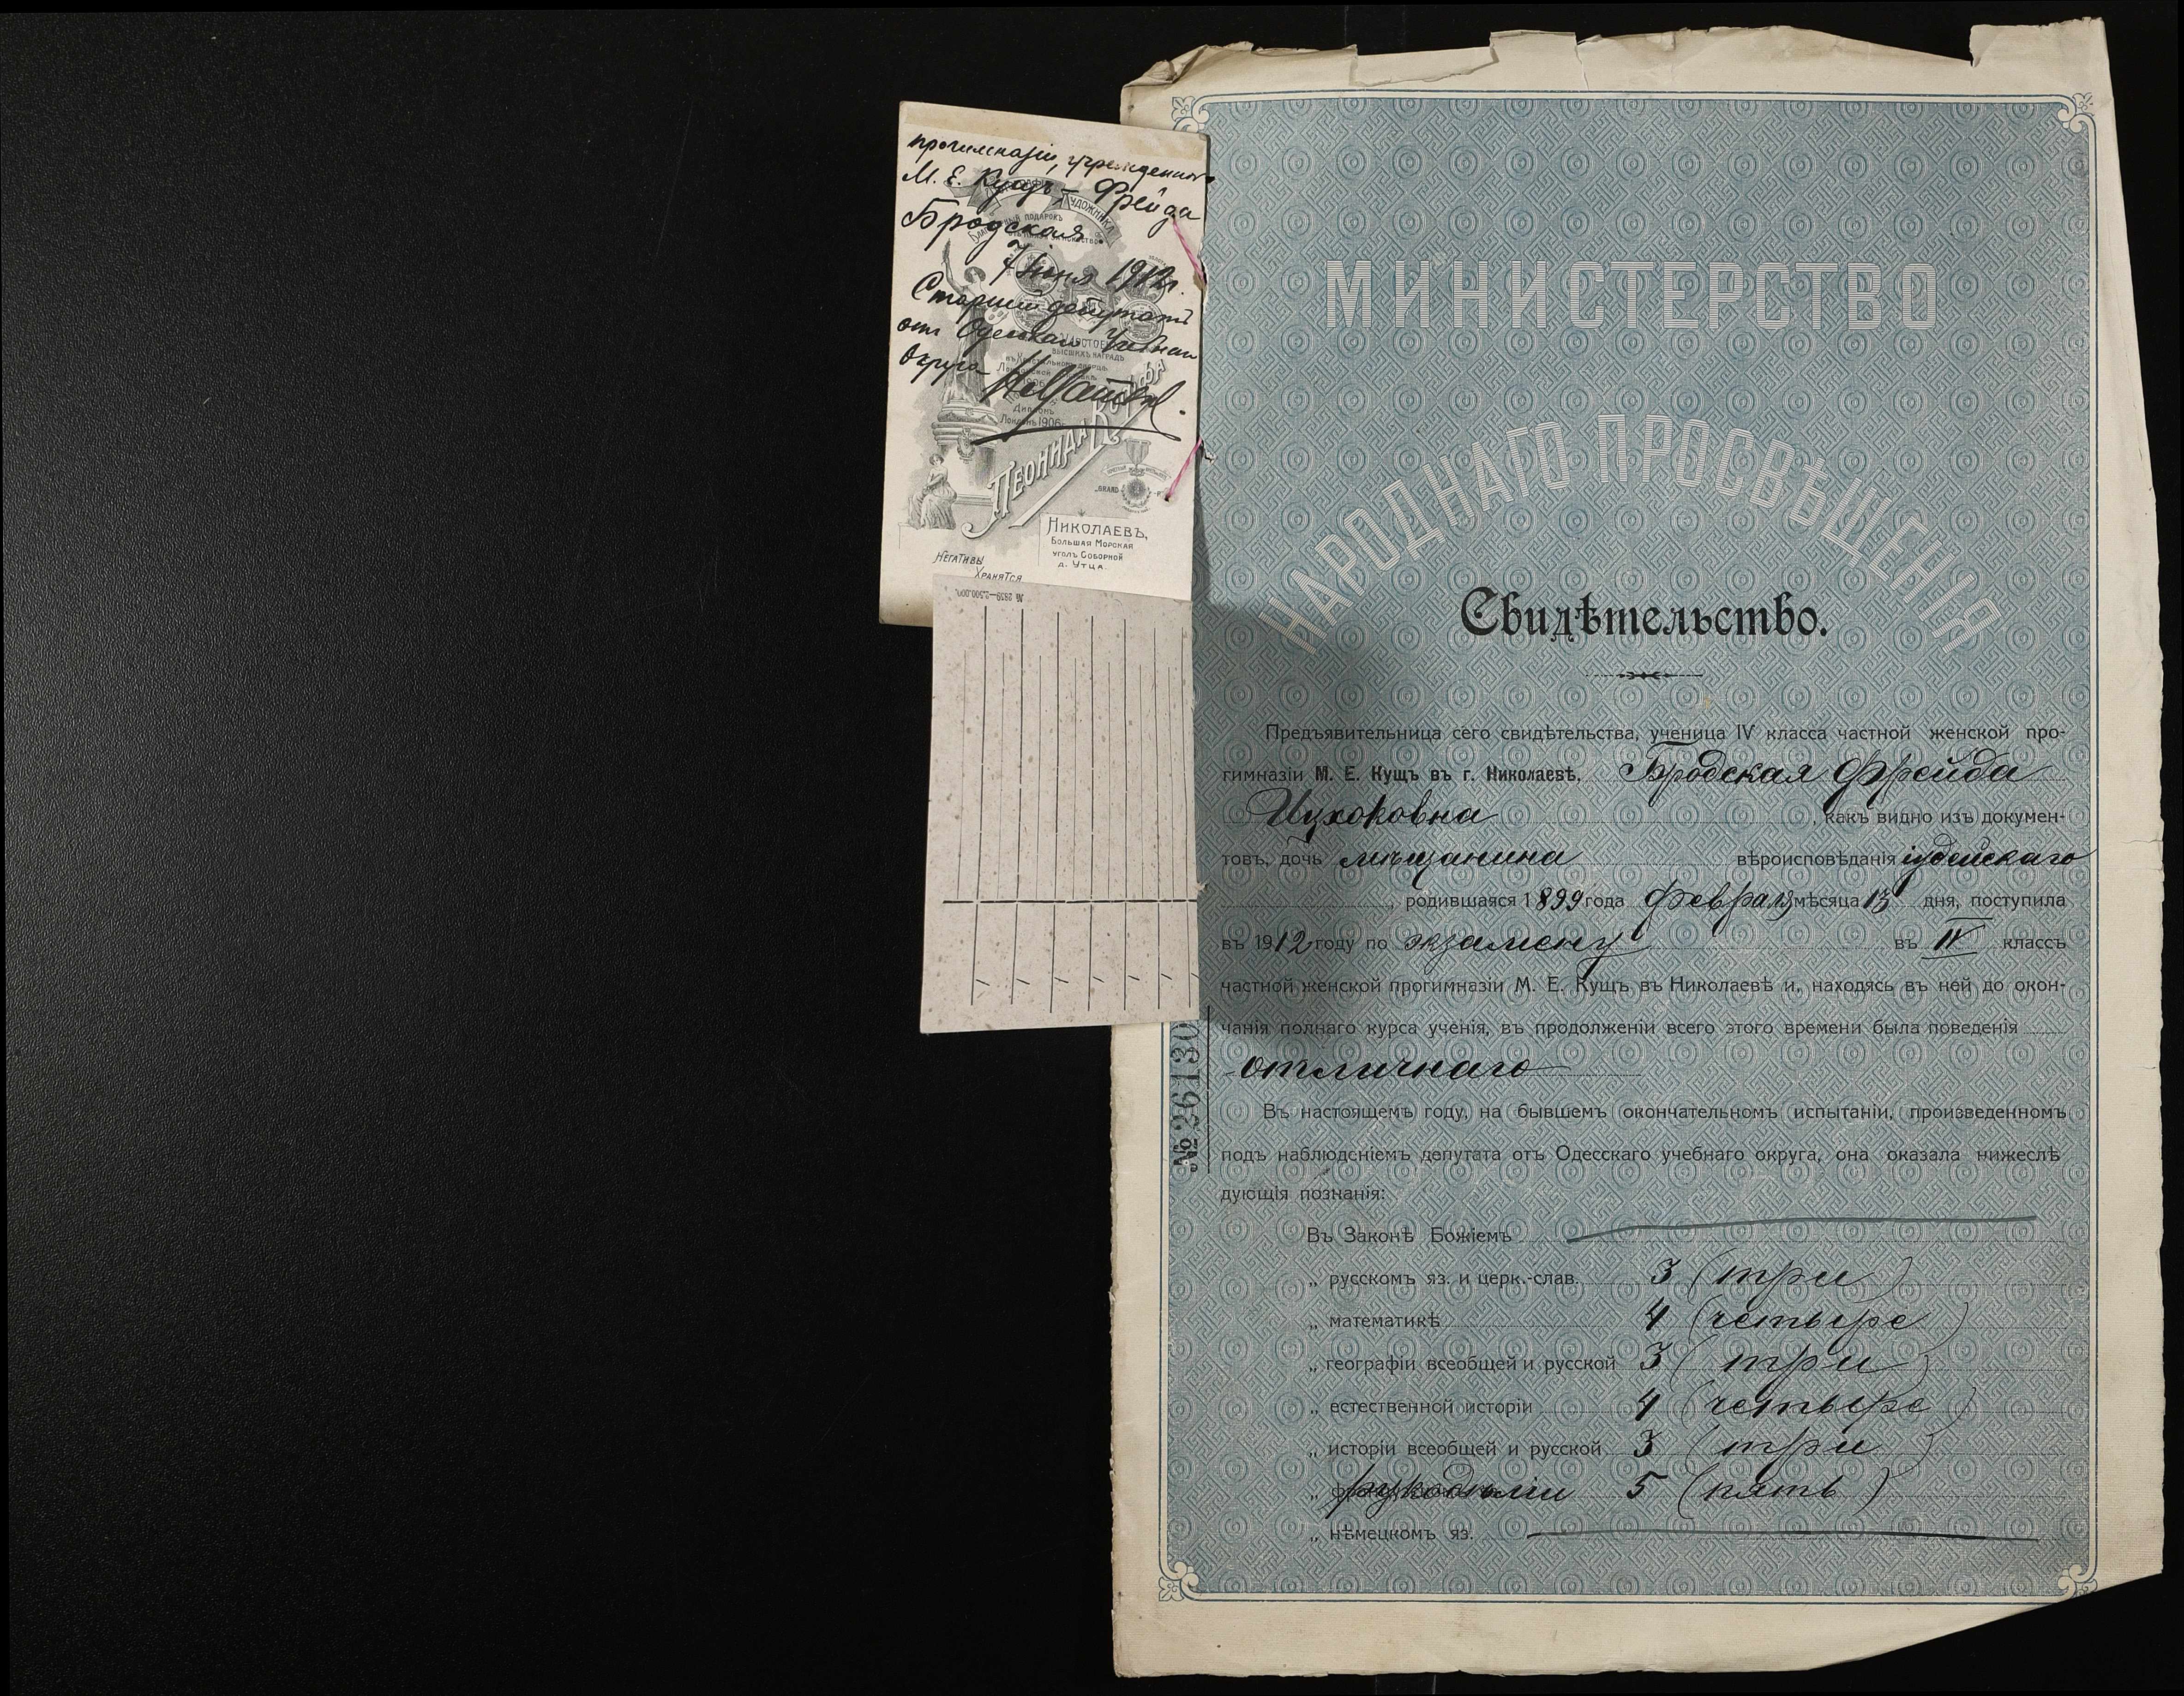 прогимназіи, учрежденной
М. Е. Кущъ – Фрейда
Бродская.
7 Іюня 1912 г.
Старшій депутатъ
отъ Одесскаго Учебнаго
Округа
ХУДОЖНИКА
ПОДАРОКЪ
ВЫСШИХЪ НАГРАДЪ
Дипломъ
Лондонъ 1906 г.
ЛЕОНИДА
GRAND
НИКОЛАЕВЪ,
БОЛЬШАЯ МОРСКАЯ
УГОЛЪ СОБОРНОЙ
Д. УТЦА.
НЕГАТИВЫ
ХРАНЯТСЯ
№ 2839—2.500.000.
МИНИСТЕРСТВО
НАРОДНАГО ПРОСВѢЩЕНІЯ
Свидѣтельство.
Предъявительница сего свидѣтельства, ученица IV класса частной женской про-
гимназіи М. Е. Кущъ въ г. Николаевѣ, Бродская Фрейда
Ицхоковна, какъ видно изъ докумен-
товъ, дочь мѣщанина вѣроисповѣданія іудейскаго
, родившаяся 1899 года февраля мѣсяца 13 дня, поступила
въ 1912 году по экзамену въ IV классъ
частной женской прогимназіи М. Е. Кущъ въ Николаевѣ и, находясь въ ней до окон-
чанія полнаго курса ученія, въ продолженіи всего этого времени была поведенія
отличнаго
Въ настоящемъ году, на бывшемъ окончательномъ испытаніи, произведенномъ
подъ наблюденіемъ депутата отъ Одесскаго учебнаго округа, она оказала нижеслѣ
дующія познанія:
Въ Законѣ Божіемъ
„ русскомъ яз. и церк.-слав. 3 (три)
„ математикѣ 4 (четыре)
„ географіи всеобщей и русской 3 (три)
„ естественной исторіи 4 (четыре)
„ исторіи всеобщей и русской 3 (три)
„ рукодѣліи 5 (пять)
„ нѣмецкомъ яз.
№ 261130